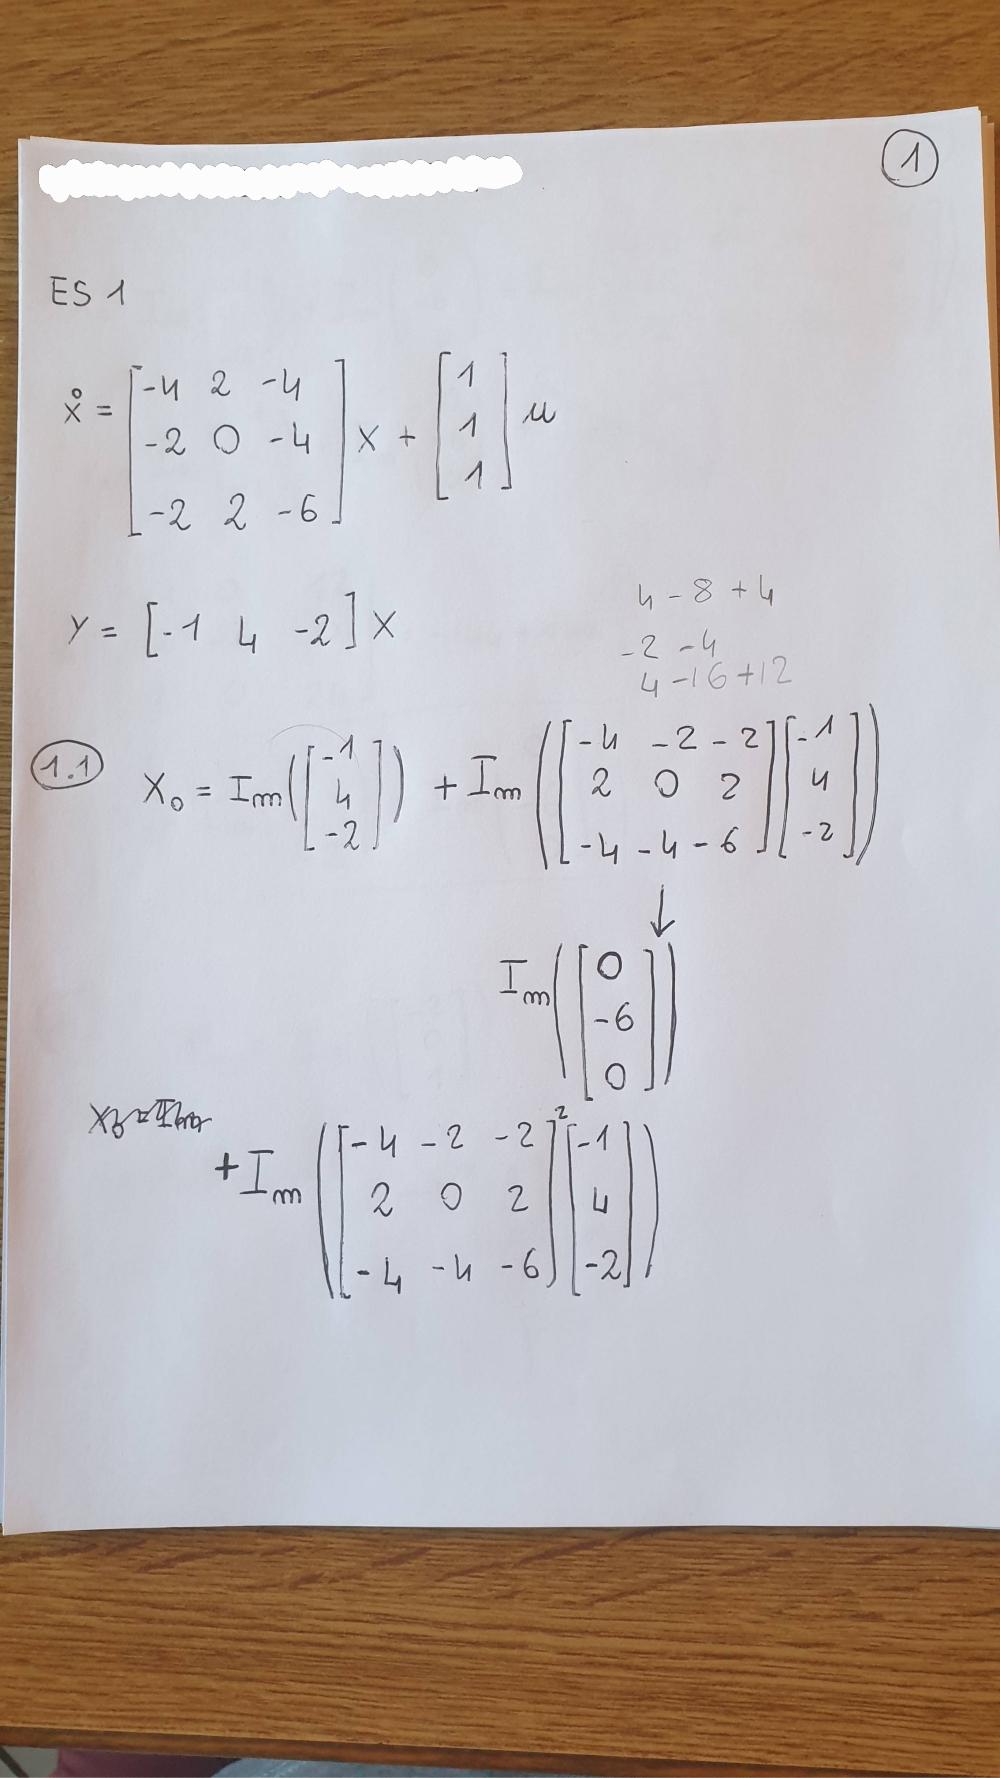 1
ES 1
ẋ = [-4 2 -4; -2 0 -4; -2 2 -6] x + [1; 1; 1] u
4 - 8 + 4
y = [-1 4 -2] x
-2 - 4
4 - 16 + 12
1.1 X₀ = Im([-1; 4; -2]) + Im([-4 -2 -2; 2 0 2; -4 -4 -6] [-1; 4; -2])
↓
Im([0; -6; 0])
X₀ = Im
+ Im([-4 -2 -2; 2 0 2; -4 -4 -6]² [-1; 4; -2])